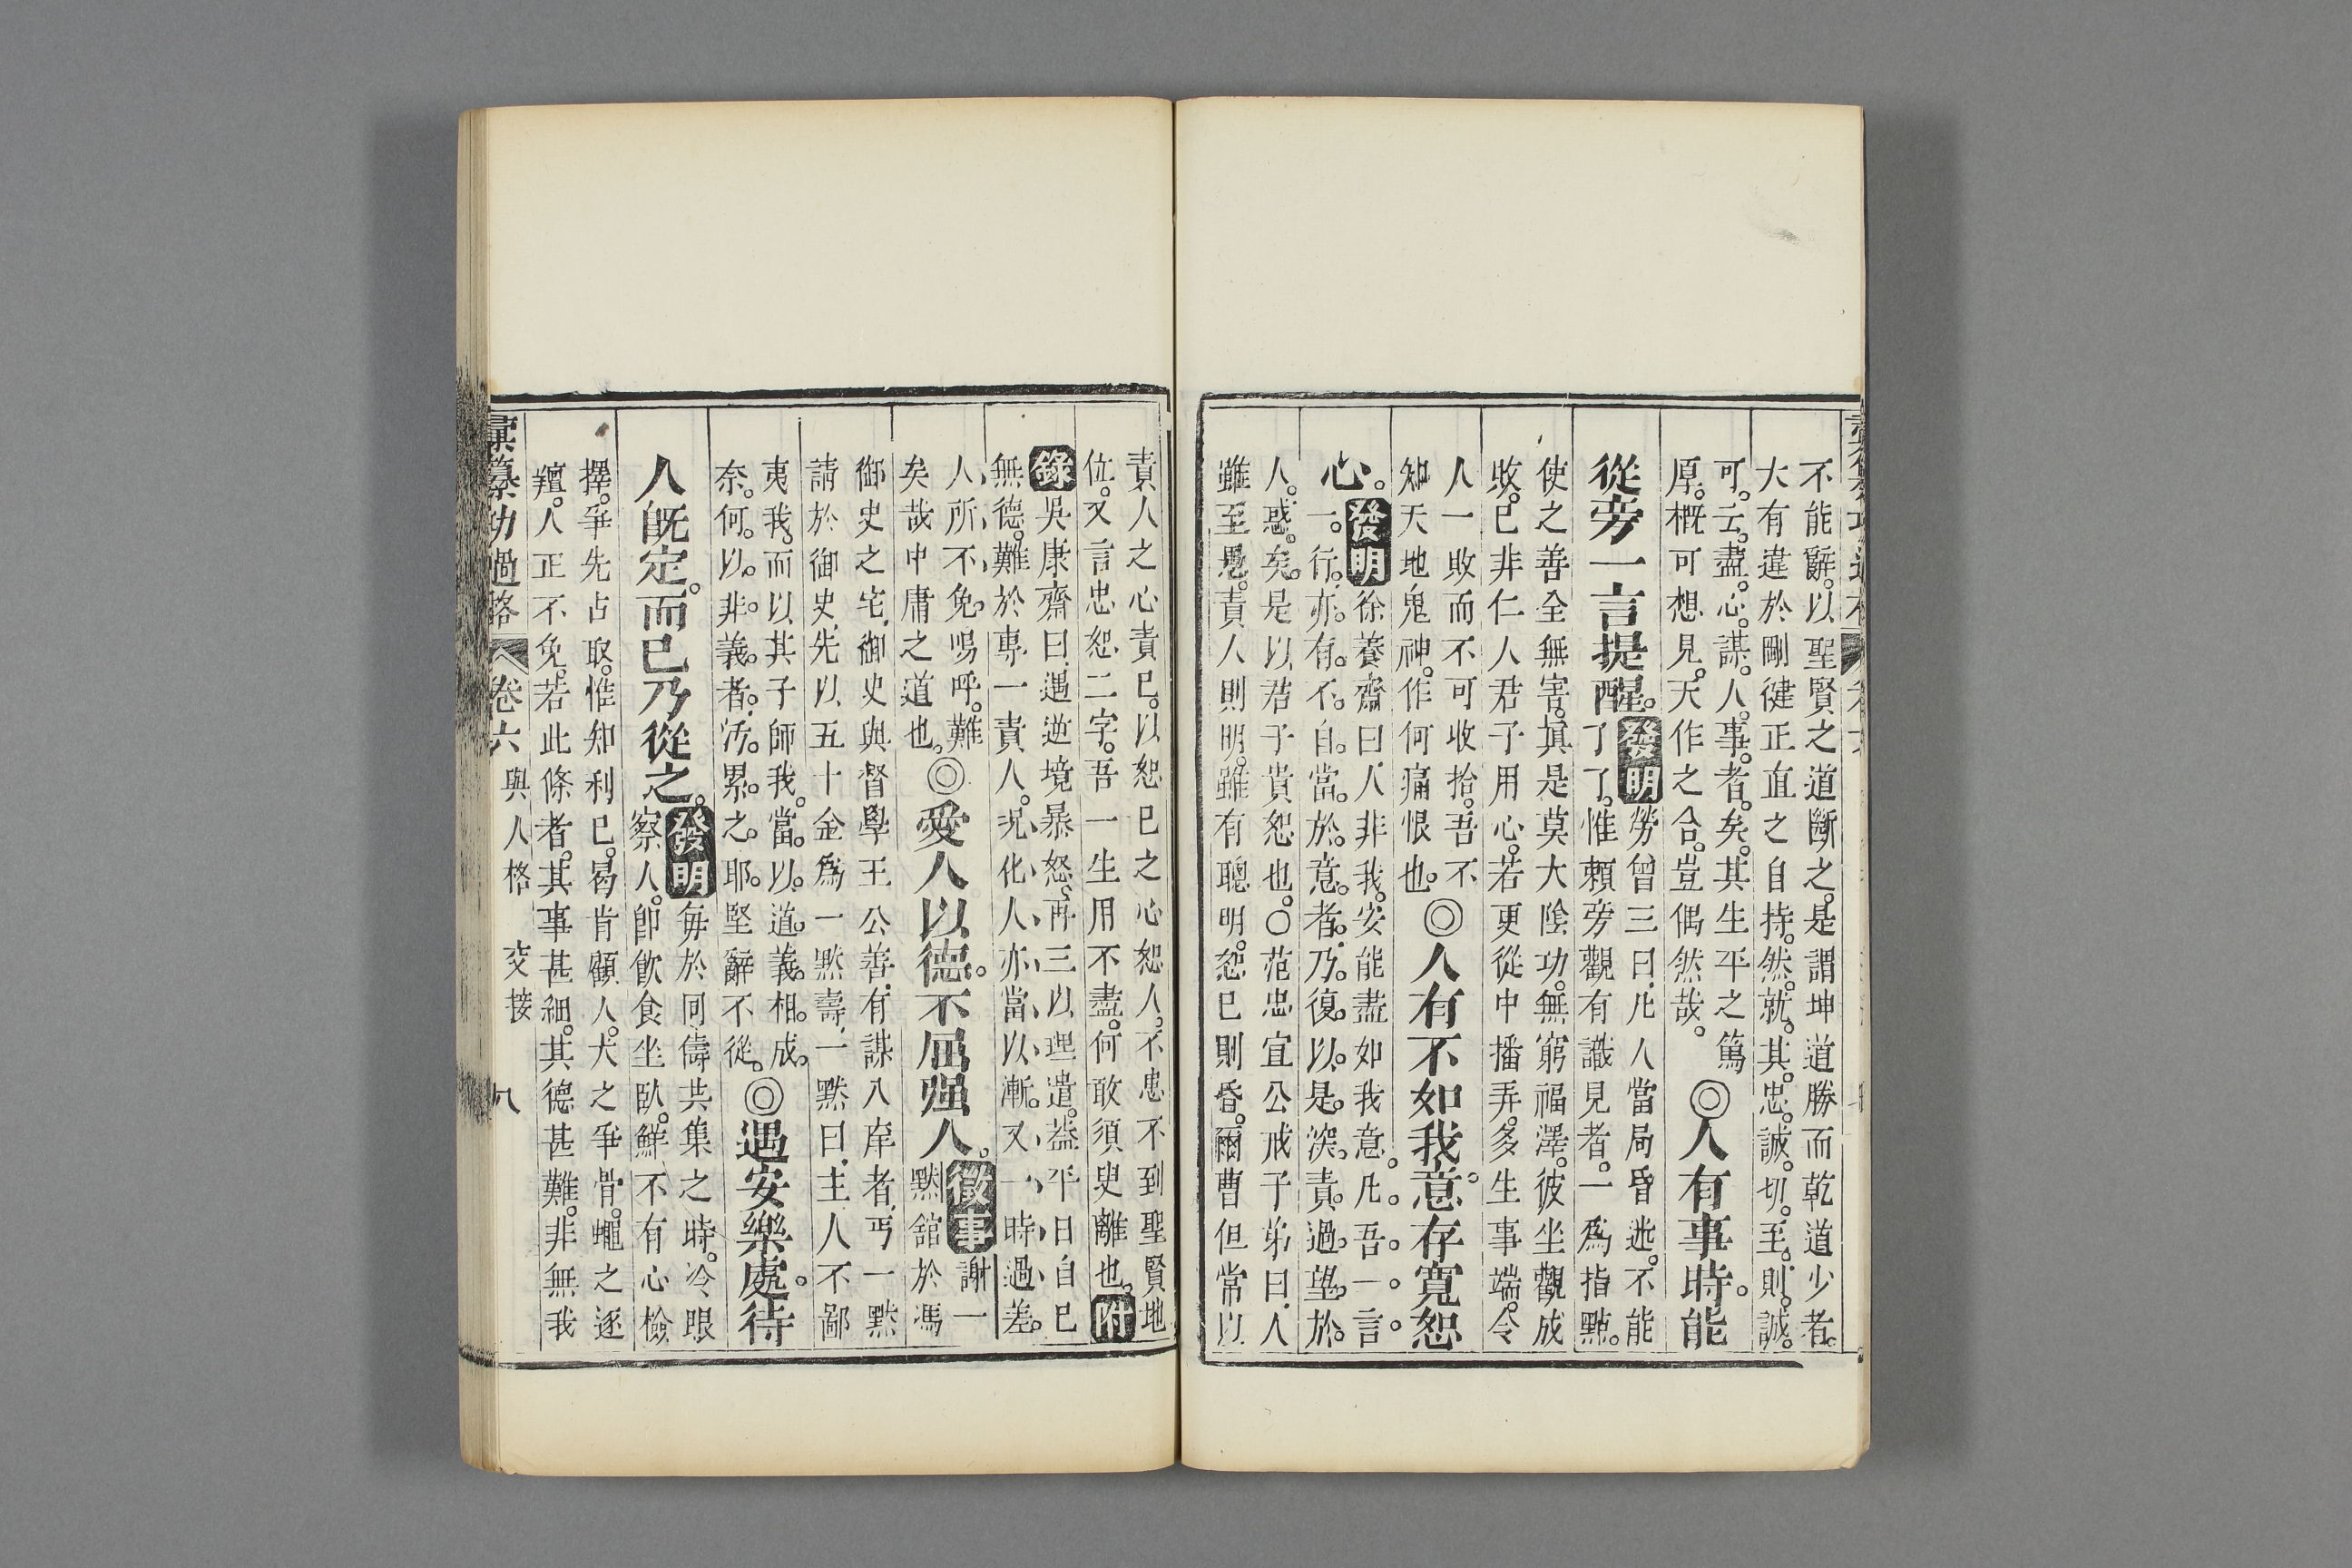 不能辭。以聖賢之道斷之。是謂坤道勝而乾道少者。
大有違於剛健正直之自持。然。就。其。忠。誠。切。至。則。誠。
可。云。盡。心。謀。人。事。者。矣。其生平之篤
原。概可想見。天作之合。豈偶然哉。
◎人有事時。能
從旁一言提醒。
發明
勞曾三曰。凡人當局昏迷。不能
了了。惟賴旁觀有識見者。一爲指點。
使之善全無害。眞是莫大陰功。無窮福澤。彼坐觀成
敗。已非仁人君子用心。若更從中播弄。多生事端。令
人一敗而不可收拾。吾不
知天地鬼神。作何痛恨也。
◎人有不如我意。存寬恕
心。
發明
徐養齋曰。人非我。安能盡如我意。凡。吾。一。言。
一。行。亦。有。不。自。當。於。意。者。乃。復。以。是。深。責。過。望。於。
人。惑。矣。是以君子貴恕也。〇范忠宣公戒子弟曰。人
雖至愚。責人則明。雖有聰明。恕已則昏。爾曹但常以
責人之心責已。以恕已之心恕人。不患不到聖賢地
位。又言忠恕二字。吾一生用不盡。何敢須臾離也。
附
錄
吳康齋曰。遇逆境暴怒。再三以理遣。葢平日自已
無德。難於專一責人。况化人亦當以漸。又一時過差。
人所不免。嗚呼。難
矣哉中庸之道也。
◎愛人以德。不屈强人。
徵事
謝一
點舘於馮
御史之宅。御史與督學王公善。有謀入庠者。丐一點
請於御史。先以五十金爲一點壽。一點曰。主人不鄙
夷我。而以其子師我。當。以。道。義。相。成。
奈。何。以。非。義。者。汚。累。之。耶。堅辭不從。
◎遇安樂處。待
人既定。而已乃從之。
發明
每於同儔共集之時。冷眼
察人。卽飮食坐臥。鮮不有心檢
擇。爭先占取。惟知利已。曷肯顧人。犬之爭骨。蠅之逐
羶。人正不免。若此條者。其事甚細。其德甚難。非無我
彙纂功過格 卷六 與人格 交接 八